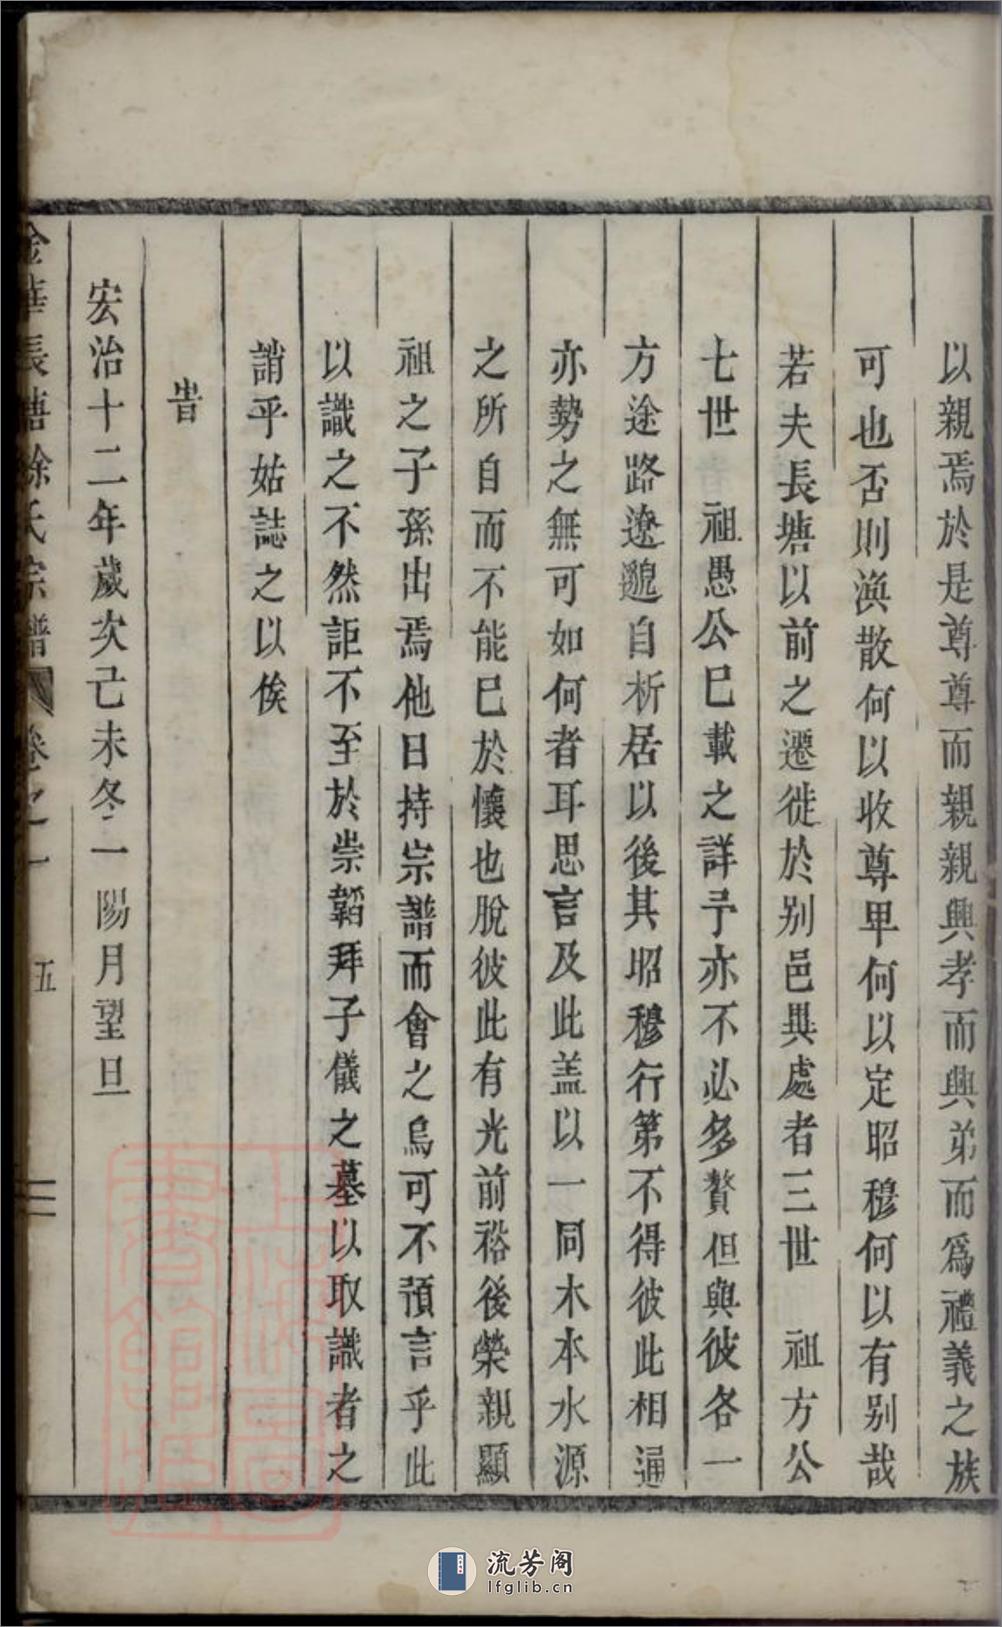 以親焉於是尊尊而親親興孝而興弟而爲禮義之族
可也否則渙散何以收尊卑何以定昭穆何以有别哉
若夫長塘以前之遷徙於别邑異處者三世　祖方公
七世　祖愚公已載之詳予亦不必多贅但與彼各一
方途路遼邈自析居以後其昭穆行第不得彼此相通
亦勢之無可如何者耳思言及此盖以一同木本水源
之所自而不能已於懷也脫彼此有光前裕後榮親顯
祖之子孫出焉他日持宗譜而會之烏可不預言乎此
以識之不然詎不至於崇韜拜子儀之墓以取識者之
誚乎姑誌之以俟
旹
宏治十二年歲次己未冬一陽月望旦
金華長塘徐氏宗譜　卷之一　五
流芳阁
lfglib.cn